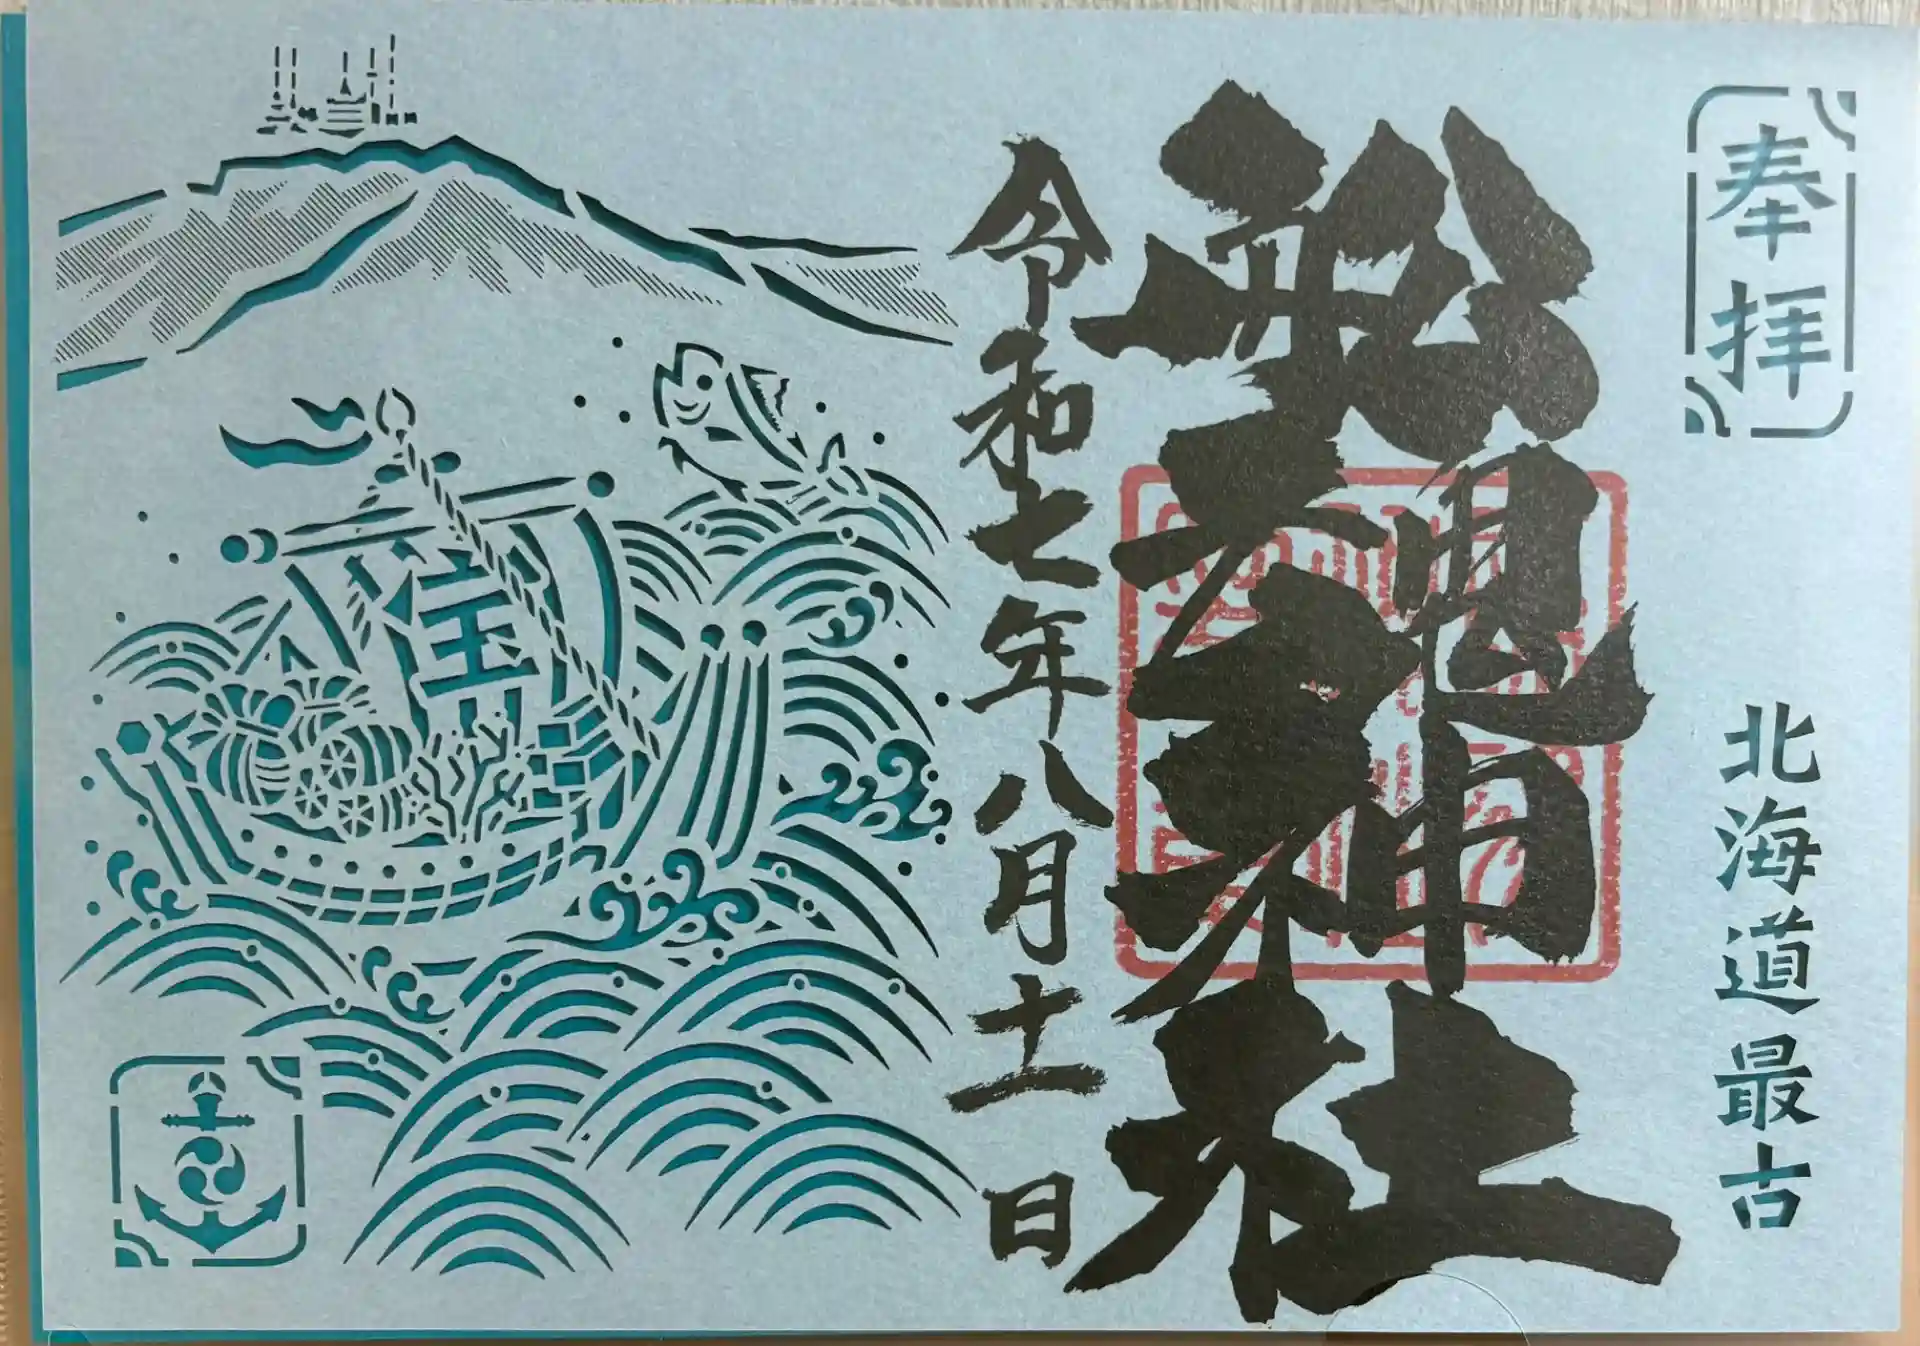 奉拝
北海道最古
舩魂神社
令和七年八月十一日
宝